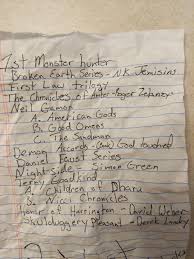 1st Monster hunter
Broken Earth Series - N.K. Jemisins
First Law trilogy
The Chronicles of Amber - Roger Zelanzey
Neil Gaman
A. American Gods
B. Good Omens
C. The Sandman
Demon Accords - (Ank) God touched
Daniel Faust Series
Nightside - Simon Green
Terry Goodkind
A. Children of Dharu
B. Nicci Chronicles
Honor of Harrington - David Weber
Skulduggery Pleasant - Derek Landy